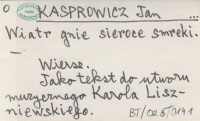 O KASPROWICZ Jan ...
Wiatr gnie sieroce smreki.
—
Wiersz.
Jako tekst do utworu
muzycznego Karola Lisz-
niewskiego.
BT/02.5/0141